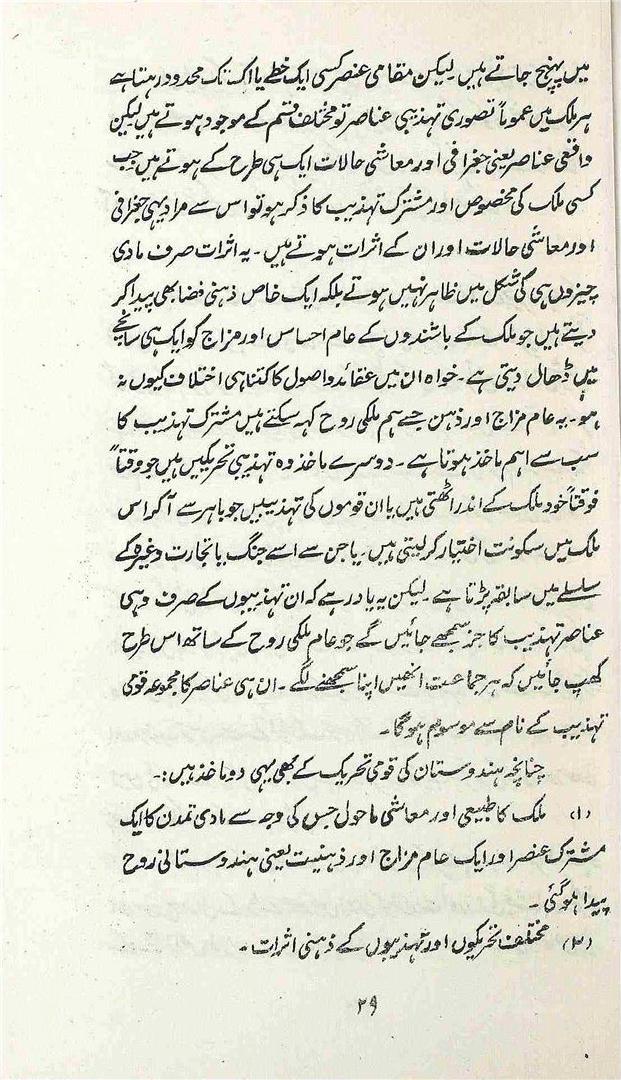 میں پہنچ جاتے ہیں۔ لیکن مقامی عنصر کسی ایک خطے یا اک تک محدود رہتا ہے
ہر ملک میں عموماً تصوری تہذیبی عناصر تو مختلف قسم کے موجود ہوتے ہیں لیکن
واقعی عناصر یعنی جغرافی اور معاشی حالات ایک ہی طرح کے ہوتے ہیں جب
کسی ملک کی مخصوص اور مشترک تہذیب کا ذکر ہو تو اس سے مراد یہی جغرافی
اور معاشی حالات اور ان کے اثرات ہوتے ہیں۔ یہ اثرات صرف مادی
چیزوں ہی کی شکل میں ظاہر نہیں ہوتے بلکہ ایک خاص ذہنی فضا بھی پیدا کر
دیتے ہیں جو ملک کے باشندوں کے عام احساس اور مزاج کو ایک ہی سانچے
میں ڈھال دیتی ہے۔ خواہ ان میں عقائد و اصول کا کتنا ہی اختلاف کیوں نہ
ہو۔ یہ عام مزاج اور ذہن جسے ہم ملکی روح کہہ سکتے ہیں مشترک تہذیب کا
سب سے اہم ماخذ ہوتا ہے۔ دوسرے ماخذ وہ تہذیبی تحریکیں ہیں جو وقتاً
فوقتاً خود ملک کے اندر اٹھتی ہیں یا ان قوموں کی تہذیبیں جو باہر سے آکر اس
ملک میں سکونت اختیار کر لیتی ہیں۔ یا جن سے اسے جنگ یا تجارت وغیرہ کے
سلسلے میں سابقہ پڑتا ہے۔ لیکن یہ یاد رہے کہ ان تہذیبوں کے صرف وہی
عناصر تہذیب کا جز سمجھے جائیں گے جو عام ملکی روح کے ساتھ اس طرح
کھپ جائیں کہ ہر جماعت انھیں اپنا سمجھنے لگے۔ ان ہی عناصر کا مجموعہ قومی
تہذیب کے نام سے موسوم ہوگا۔
چنانچہ ہندوستان کی قومی تحریک کے بھی یہی دو ماخذ ہیں:۔
(۱) ملک کا طبیعی اور معاشی ماحول جس کی وجہ سے مادی تمدن کا ایک
مشترک عنصر اور ایک عام مزاج اور ذہنیت یعنی ہندوستانی روح
پیدا ہوگئی۔
(۲) مختلف تحریکوں اور تہذیبوں کے ذہنی اثرات۔
۲۹